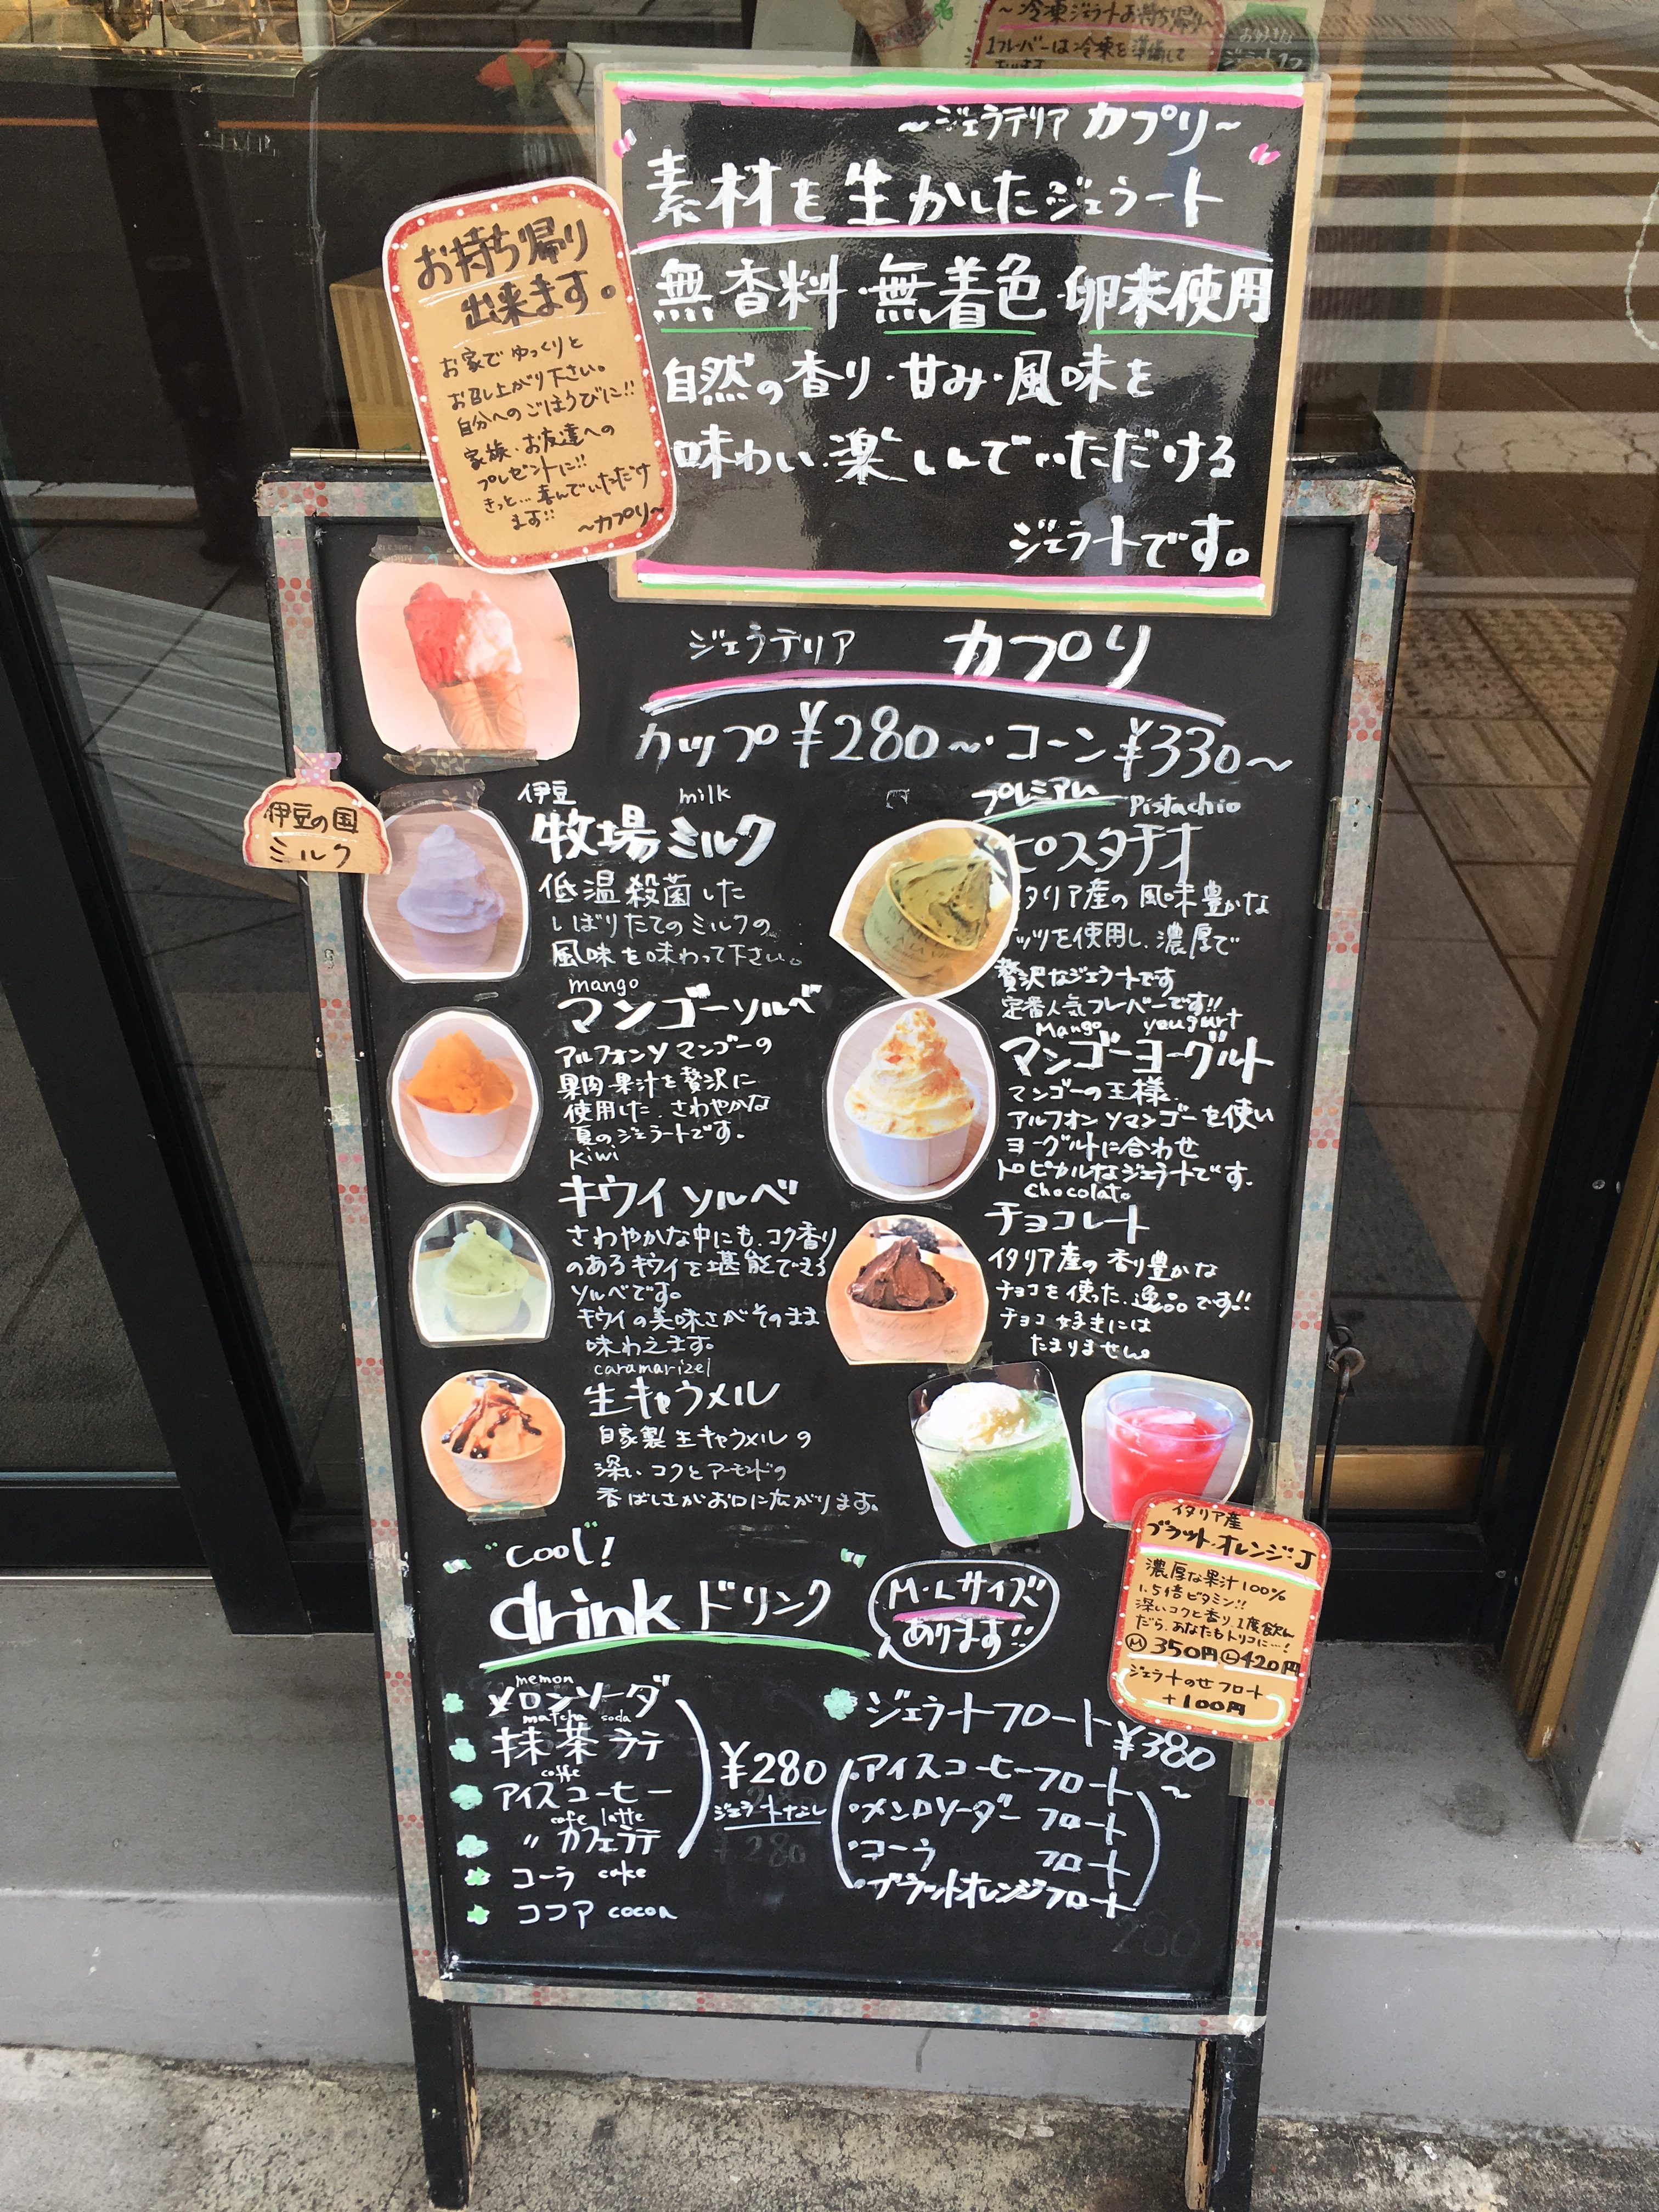 ～冷凍ジェラートお持ち帰り～
1フレーバーは冷凍を準備して
おります
～ジェラテリア カプリ～
素材を生かしたジェラート
無香料・無着色・卵未使用
自然の香り・甘み・風味を
味わい楽しんでいただける
ジェラートです。
お持ち帰り
出来ます。
お家でゆっくりと
お召し上がり下さい。
自分へのごほうびに!!
家族・お友達への
プレゼントに!!
きっと…喜んでいただけ
ます!!
～カプリ～
ジェラテリア カプリ
カップ ¥280～・コーン ¥330～
伊豆の国
ミルク
伊豆 milk
牧場ミルク
低温殺菌した
しぼりたてのミルクの
風味を味わって下さい。
mango
マンゴーソルベ
アルフォンソマンゴーの
果肉果汁を贅沢に
使用した、さわやかな
夏のジェラートです。
Kiwi
キウイソルベ
さわやかな中にも、コク香り
のあるキウイを堪能できる
ソルベです。
キウイの美味さがそのまま
味わえます。
caramarizel
生キャラメル
自家製生キャラメルの
深いコクとアーモンドの
香ばしさがお口に広がります。
プレミアム Pistachio
ピスタチオ
タリア産の風味豊かな
ッツを使用し、濃厚で
贅沢なジェラートです
定番人気フレーバーです!!
Mango yougurt
マンゴーヨーグルト
マンゴーの王様、
アルフォンソマンゴーを使い
ヨーグルトに合わせ
トロピカルなジェラートです。
Chocolato
チョコレート
イタリア産の香り豊かな
チョコを使った、逸品です!!
チョコ好きには
たまりません。
イタリア産
ブラットオレンジ・J
濃厚な果汁100%
1.5倍ビタミン!!
深いコクと香り、1度飲ん
だら、あなたもトリコに…!
Ⓜ350円Ⓛ420円
ジェラートのせフロート
+100円
cool!
drink ドリンク
M・Lサイズ
あります!!
memon
メロンソーダ
matcha soda
抹茶ラテ
coffe
アイスコーヒー
cafe latte
〃 カフェラテ
コーラ cake
ココア cocoa
¥280
ジェラートなし
ジェラートフロート ¥380～
・アイスコーヒーフロート
・メンロソーダー フロート
・コーラ フロート
・ブラットオレンジフロート